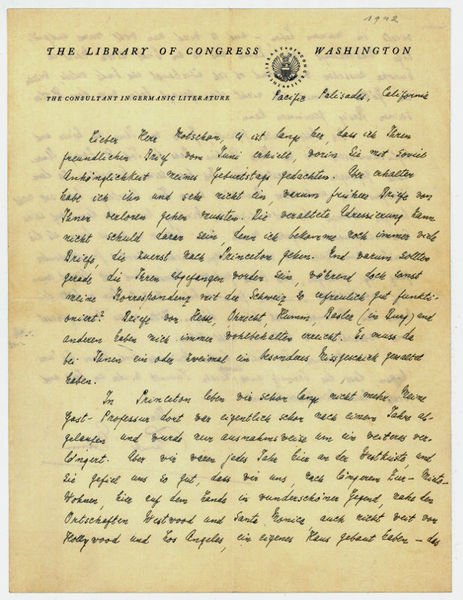 1942
THE LIBRARY OF CONGRESS WASHINGTON
THE CONSULTANT IN GERMANIC LITERATURE
Pacific Palisades, California
Lieber Herr Motschan, es ist lange her, dass ich Ihren
freundlichen Brief vom Juni erhielt, worin Sie mit soviel
Anhänglichkeit meines Geburtstags gedachten. Aber erhalten
habe ich ihn und sehe nicht ein, warum frühere Briefe von
Ihnen verloren gehen mussten. Die veraltete Adressierung kann
nicht schuld daran sein, denn ich bekomme noch immer viele
Briefe, die zuerst nach Princeton gehen. Und warum sollten
gerade die Ihren abgefangen worden sein, während doch sonst
meine Korrespondenz mit der Schweiz so erfreulich gut funkti-
oniert? Briefe von Hesse, Oprecht, Basler und
anderen haben mich immer wohlbehalten erreicht. Es muss da
bei Ihnen ein oder zweimal ein besonderes Missgeschick gewaltet
haben.
In Princeton leben wir schon lange nicht mehr. Meine
Gast-Professur dort war eigentlich schon nach einem Jahre ab-
gelaufen und wurde nur ausnahmsweise um ein weiteres ver-
längert. Aber wir waren jedes Jahr hier an der Westküste, und
sie gefiel uns so gut, dass wir uns, nach längerem Zur-Miete-
Wohnen, hier auf dem Lande in wunderschöner Gegend, nahe den
Ortschaften Westwood und Santa Monica, auch nicht weit von
Hollywood und Los Angeles, ein eigenes Haus gebaut haben – das